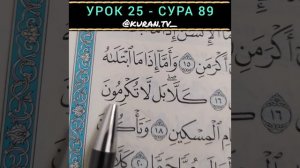 УРОК 25 - СУРА 89
@KURAN.TV_
أَكْرَمَنِ ١٥ وَأَمَّآ إِذَا مَا ٱبْتَلَىٰهُ
١٦ كَلَّا ۖ بَل لَّا تُكْرِمُونَ
ٱلْمِسْكِينِ ١٨
٢٠ كَلَّآ